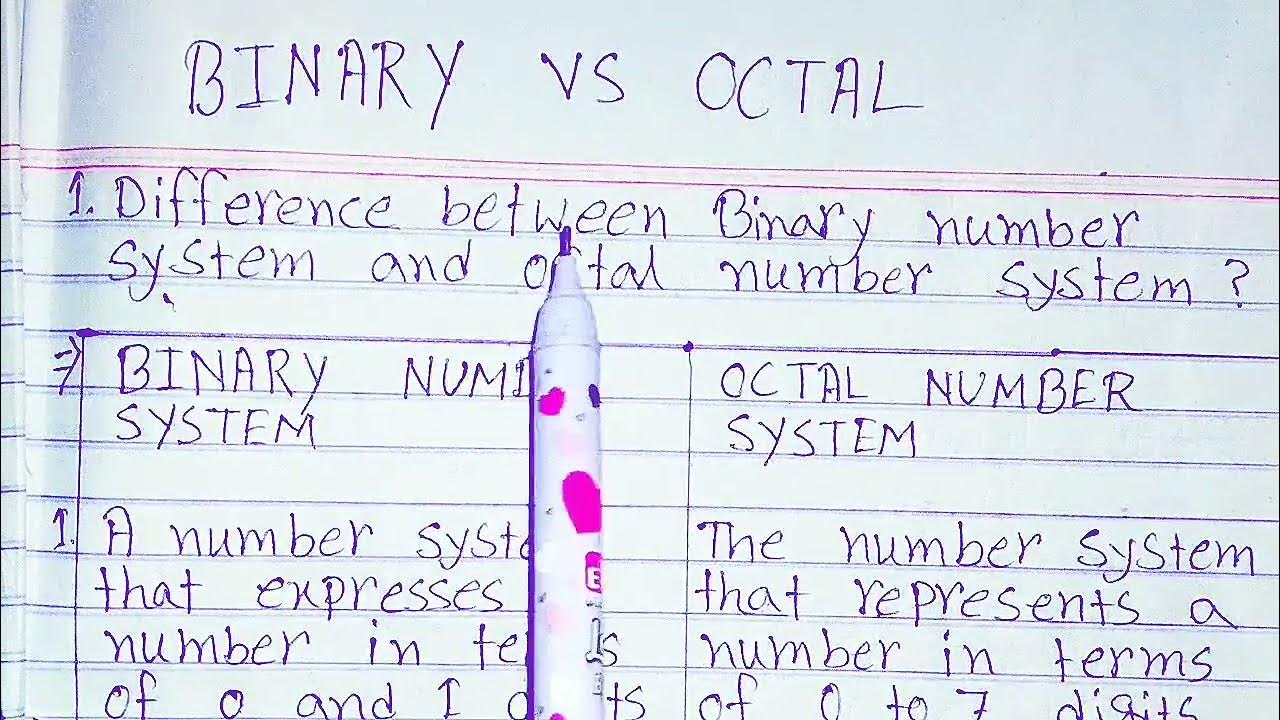 BINARY VS OCTAL
1. Difference between Binary number
system and octal number system ?
⇒ BINARY NUM
SYSTEM
OCTAL NUMBER
SYSTEM
1. A number syste
that expresses
number in te s
of 0 and 1 d ts
The number system
that represents a
number in terms
of 0 to 7 digits